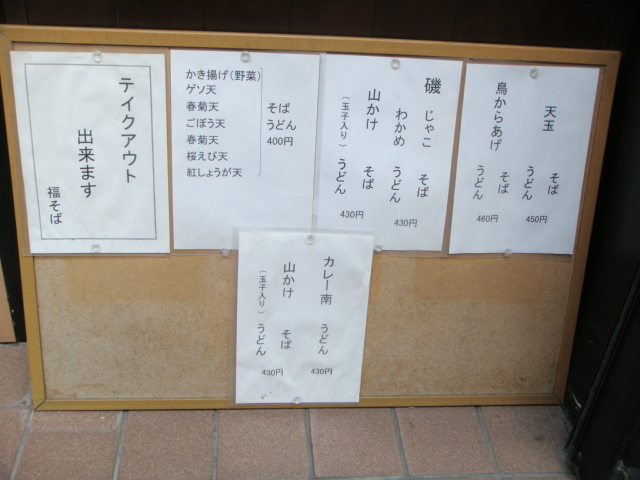 テイクアウト
出来ます
福そば
かき揚げ(野菜)
ゲソ天
春菊天
ごぼう天
春菊天
桜えび天
紅しょうが天
そば
うどん
400円
磯 じゃこ わかめ そば うどん 430円
山かけ (玉子入り) そば うどん 430円
天玉 そば うどん 450円
鳥からあげ そば うどん 460円
カレー南 うどん 430円
山かけ (玉子入り) そば うどん 430円